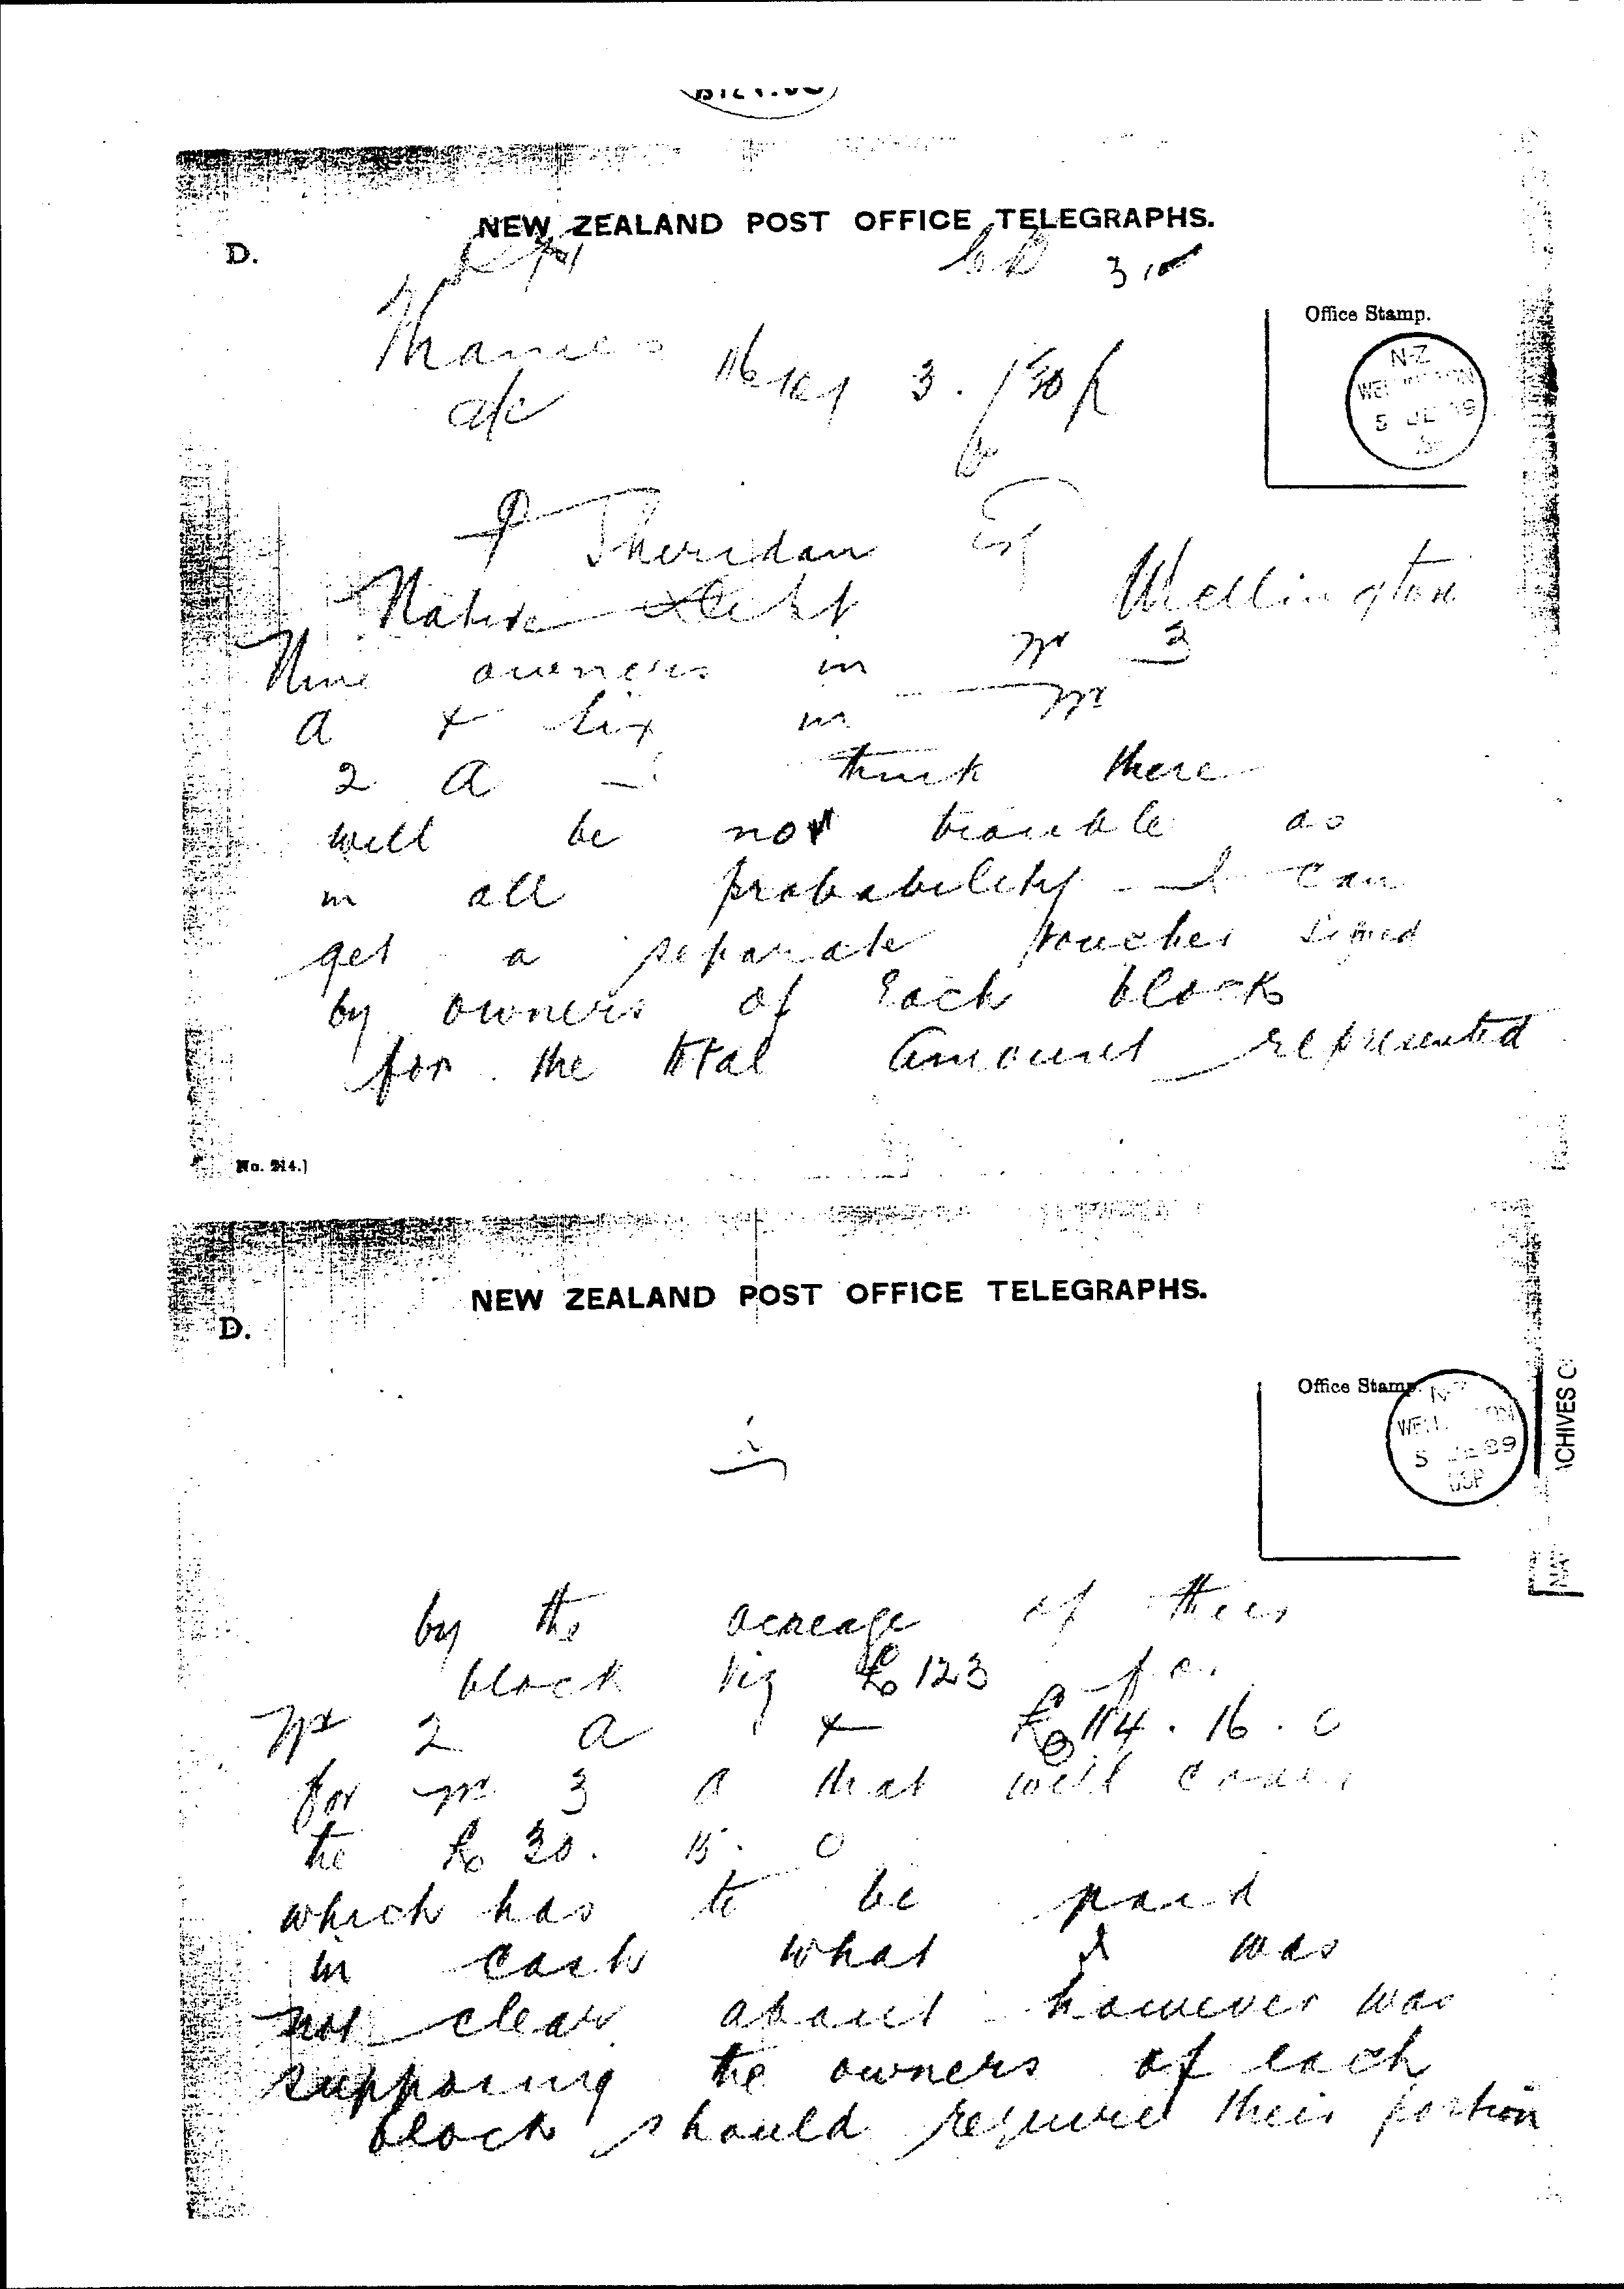 NEW ZEALAND POST OFFICE TELEGRAPHS.
D.
3
Office Stamp.
Thames
N·Z
3. 1 30 p
5 JL 9
P Sheridan Esq
Native Dept Wellington
Nine owners in no 3
a + six in no
2 a - think there
will be no trouble as
in all probability I can
get a separate voucher signed
by owners of Each block
for the total amount represented
No. 214.]
NEW ZEALAND POST OFFICE TELEGRAPHS.
D.
Office Stamp.
ACHIVES
5 89
by the acreage of their
block viz £123 for
no 2 a + £114.16.0
for no 3 a that will cover
the £30. 15. 0
which has to be paid
in cash what I was
not clear about however was
supposing the owners of each
block should require their portion